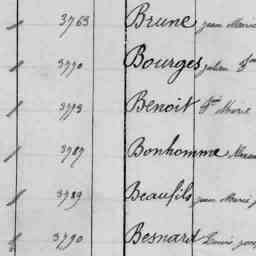 3763 Brune Jean Marie
3770 Bourges Julien
3773 Benoit Marie
3787 Bonhomme
3789 Beaufils Jean Marie
3790 Besnard Louis